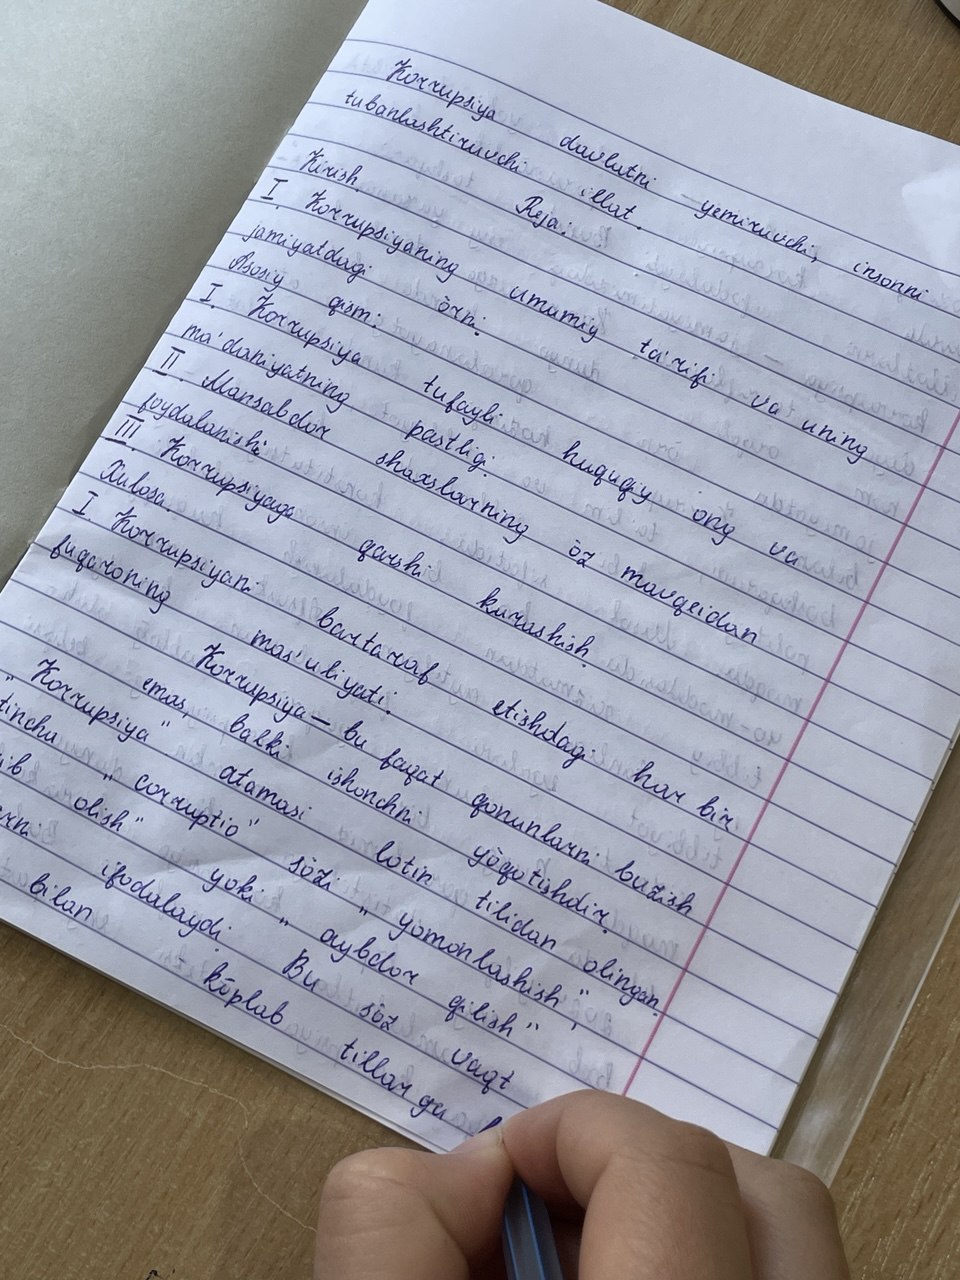 Korrupsiya davlatni yemiruvchi, insonni
tubanlashtiruvchi illat.
Reja:
Kirish
I. Korrupsiyaning umumiy ta'rifi va uning
jamiyatdagi o̅rni.
Asosiy qism:
I. Korrupsiya tufayli huquqiy ong va
ma'daniyatning pastligi
II Mansabdor shaxslarning o̅z mavqeidan
foydalanishi.
III. Korrupsiyaga qarshi kurashish.
Xulosa
I. Korrupsiyani bartaraf etishdagi har bir
fuqaroning mas'uliyati.
Korrupsiya — bu faqat qonunlarni buzish
emas, balki ishonchni yo̅qotishdir.
"Korrupsiya" atamasi lotin tilidan olingan.
"corruptio" so̅zi "yomonlashish",
olish" yoki "aybdor qilish"
ifodalaydi. Bu so̅z vaqt
bilan ko̅plab tillarga